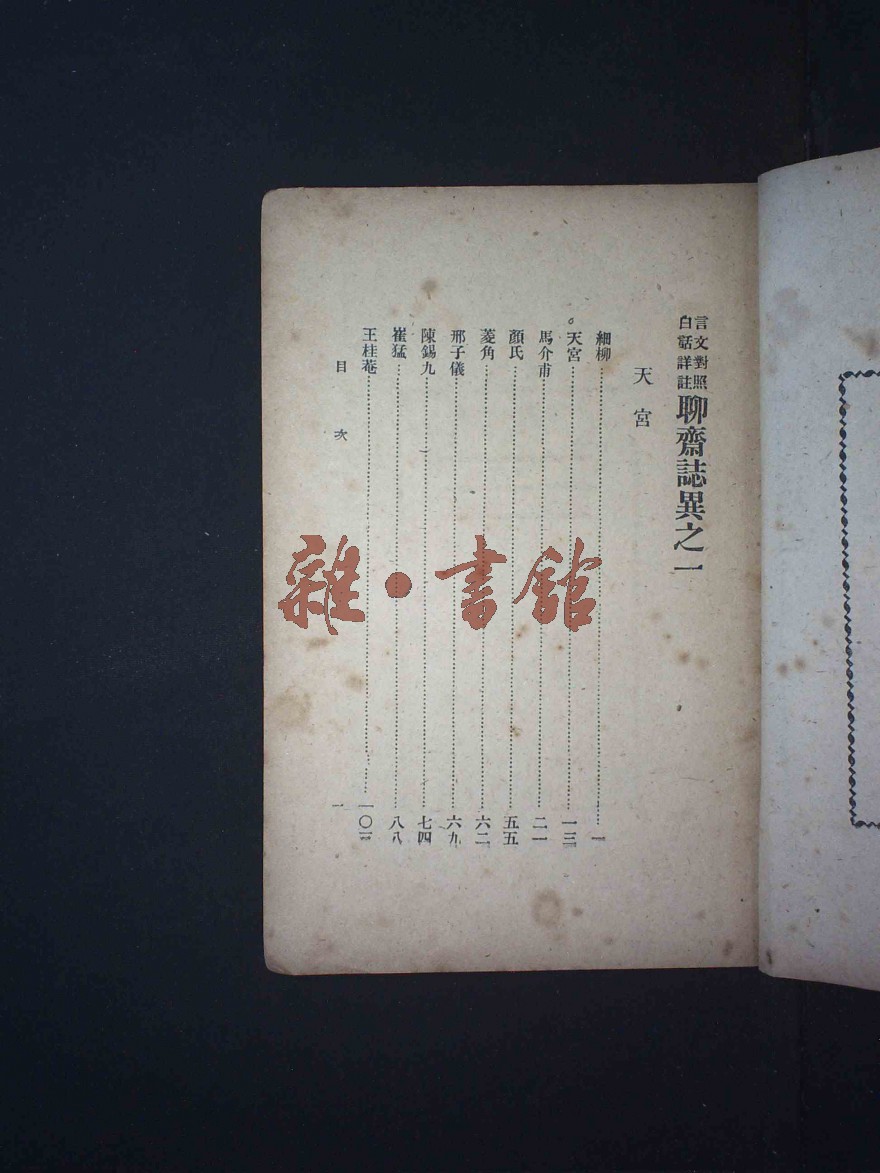 言文對照
白話詳註
聊齋誌異之一
天宮
細柳…………一
天宮…………一三
馬介甫…………二一
顏氏…………五五
菱角…………六二
邢子儀…………六九
陳錫九…………七四
崔猛…………八八
王桂菴…………一〇三
目次
一
雜·書館